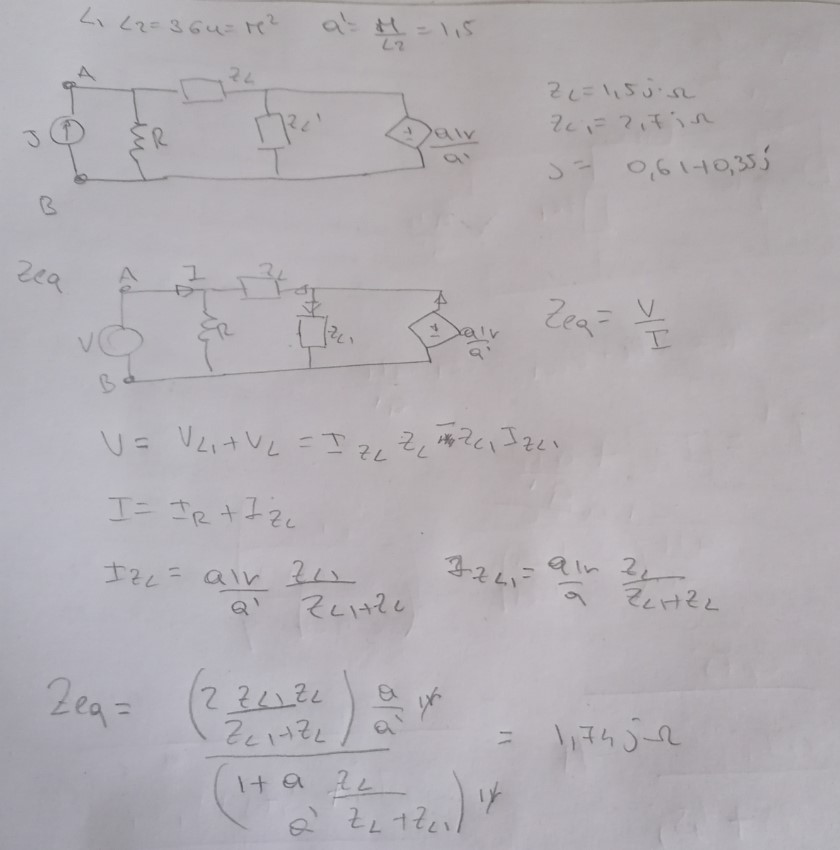 L₁ L₂ = 36u = M² a' = M/L₂ = 1,5
A
Z_L
J
R
Z_L'
± aIr/a'
B
Z_L = 1,5j Ω
Z_L1 = 2,7j Ω
J = 0,61+0,35j
Zeq
A I Z_L
V
R
Z_L1
± aIr/a'
B
Zeq = V/I
V = V_L1 + V_L = I_ZL Z_L Z_L1 I_ZL1
I = I_R + I_ZL
I_ZL = aIr/a' Z_L1/(Z_L1+Z_L) I_ZL1 = aIr/a Z_L/(Z_L1+Z_L)
Zeq = (2 Z_L1 Z_L/(Z_L1+Z_L)) a/a' Ir / (1 + a/a' Z_L/(Z_L+Z_L1)) Ir = 1,74j Ω